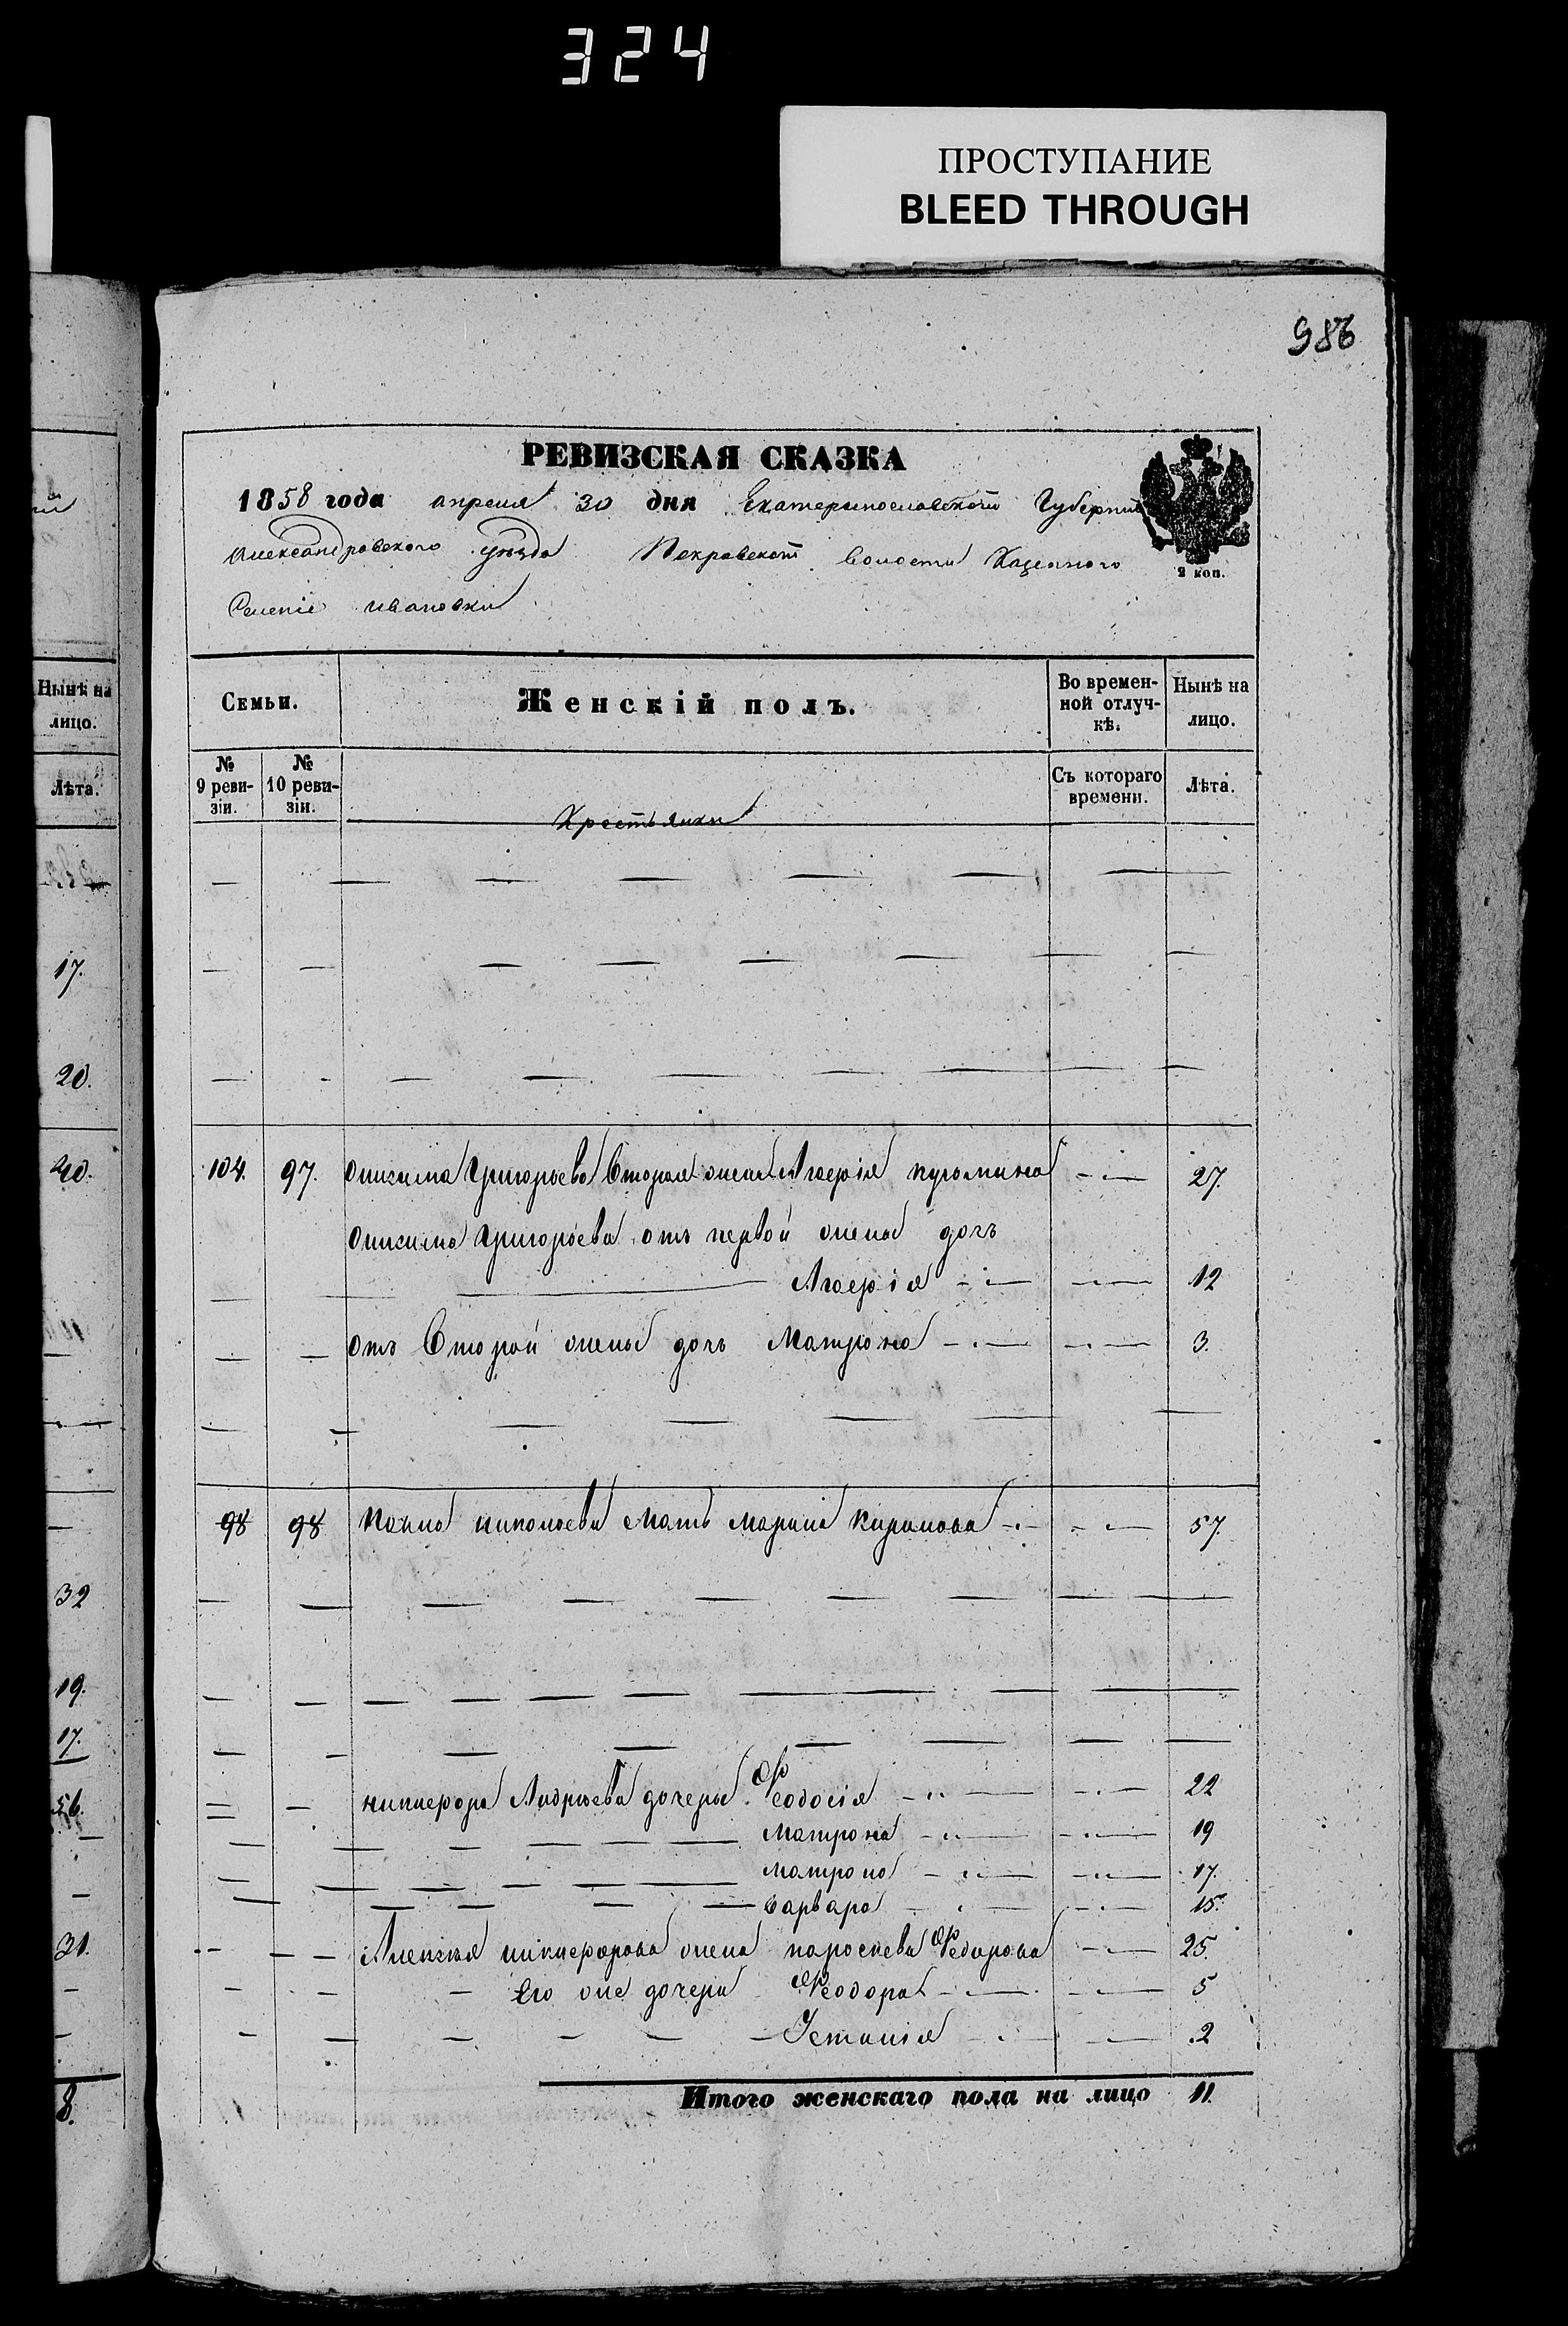 324
ПРОСТУПАНИЕ
BLEED THROUGH
986
РЕВИЗСКАЯ СКАЗКА
1858 года апреля 30 дня Екатеринославской Губернии
Александровского уезда Покровской волости Казенного
2 коп.
Селеніе Ивановки
Семьи. Женскій полъ. Во временной отлучкѣ. Нынѣ на лицо.
№ 9 ревизіи. № 10 ревизіи. Съ котораго времени. Лѣта.
Крестьянки
104. 97. Онисима Григорьева Вторая жена 27.
Онисима Григорьева отъ первой жены дочь
12
отъ Второй жены дочь Матрона 3.
98 98 мать 57.
Никифора Андреева дочери Феодосія 22
Матрона 19
Матрона 17.
Варвара 15.
Алексея Никифорова жена Параскева Федорова 25.
Его же дочери Феодора 5
2
Итого женскаго пола на лицо 11.
Нынѣ на лицо.
Лѣта.
17.
20.
40.
32
19.
17.
56.
31.
8.